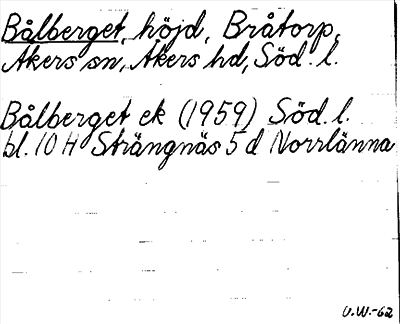 Bålberget, höjd, Bråtorp,
Åkers sn, Åkers hd, Söd. l.
Bålberget ek (1959) Söd. l.
bl. 10 H Strängnäs 5 d Norrlänna
U.W.-62